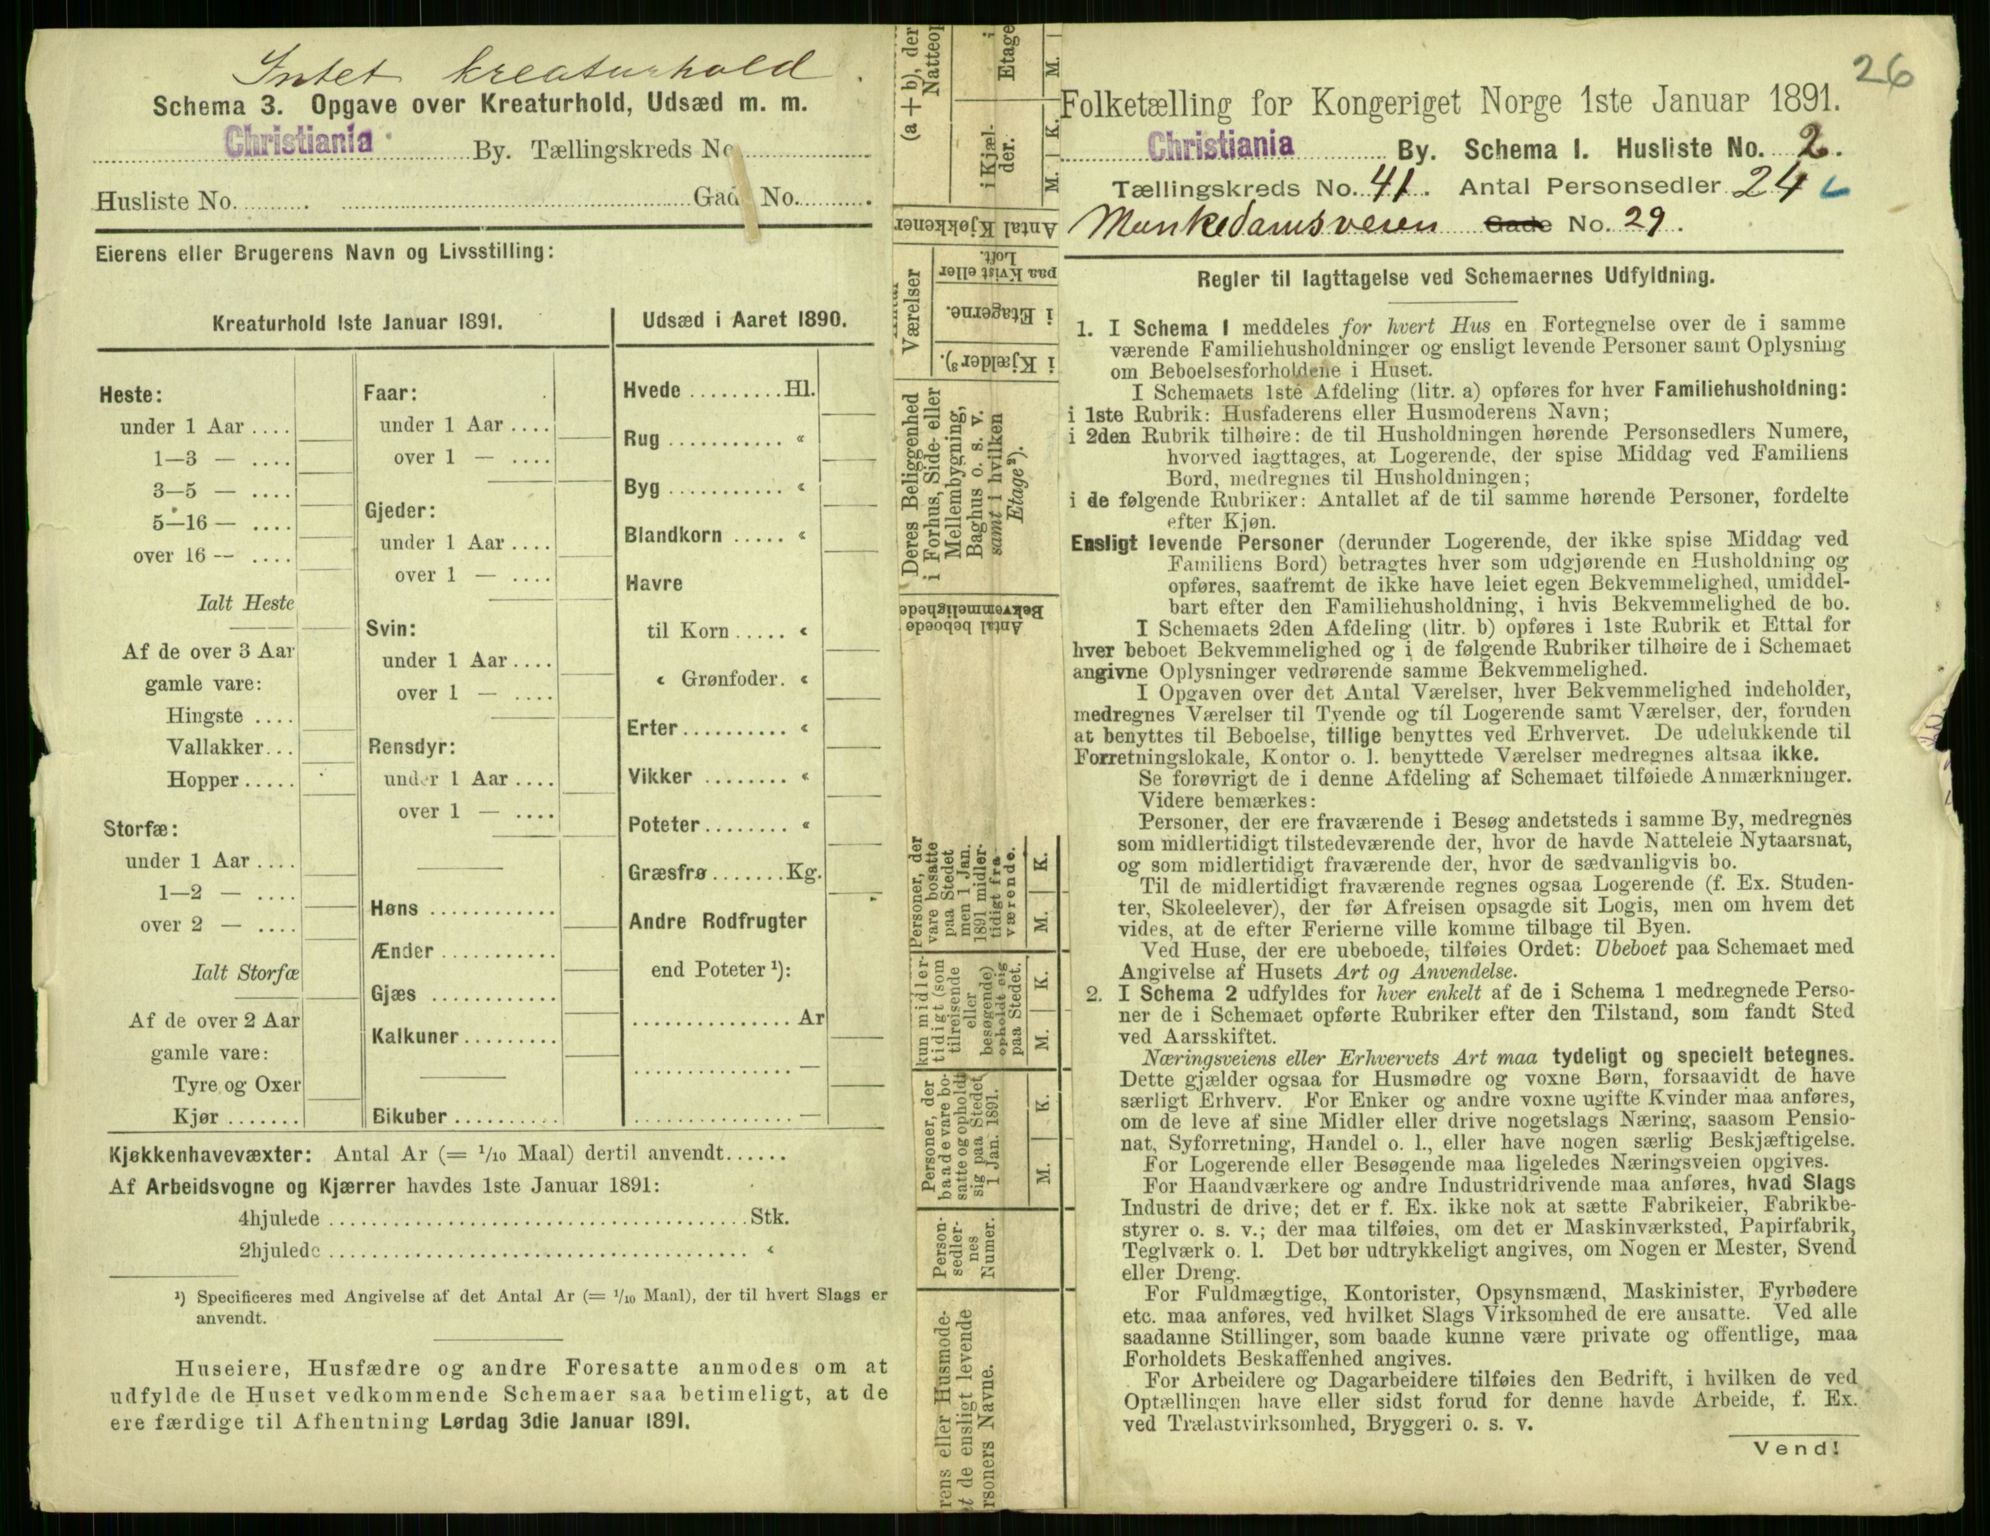 Intet kreaturhold.
Schema 3. Opgave over Kreaturhold, Udsæd m. m.
Christiania By. Tællingskreds No.
Husliste No. Gade No.
Eierens eller Brugerens Navn og Livsstilling:
Kreaturhold 1ste Januar 1891.
Heste:
under 1 Aar ....
1—3 — ....
3—5 — ....
5—16 — ....
over 16 — ....
Ialt Heste
Af de over 3 Aar
gamle vare:
Hingste ....
Vallakker...
Hopper .....
Storfæ:
under 1 Aar ....
1—2 — ....
over 2 — ....
Ialt Storfæ
Af de over 2 Aar
gamle vare:
Tyre og Oxer
Kjør .......
Faar:
under 1 Aar ....
over 1 — ....
Gjeder:
under 1 Aar ....
over 1 — ....
Svin:
under 1 Aar ....
over 1 — ....
Rensdyr:
under 1 Aar ....
over 1 — ....
Høns ............
Ænder ...........
Gjæs ............
Kalkuner.........
Bikuber ..........
Udsæd i Aaret 1890.
Hvede .........Hl.
Rug ........... «
Byg ........... «
Blandkorn ..... «
Havre
til Korn ..... «
« Grønfoder. «
Erter .......... «
Vikker ........ «
Poteter........ «
Græsfrø.......Kg.
Andre Rodfrugter
end Poteter ¹):
............... Ar
............... —
............... —
Kjøkkenhavevæxter: Antal Ar (= 1/10 Maal) dertil anvendt......
Af Arbeidsvogne og Kjærrer havdes 1ste Januar 1891:
4hjulede ........................................Stk.
2hjulede ........................................ «
¹) Specificeres med Angivelse af det Antal Ar (= 1/10 Maal), der til hvert Slags er
anvendt.
Huseiere, Husfædre og andre Foresatte anmodes om at
udfylde de Huset vedkommende Schemaer saa betimeligt, at de
ere færdige til Afhentning Lørdag 3die Januar 1891.
(a + b), der
Natteop
i Kjæl-
der.
M. K.
i
Etage
M.
Antal Kjøkkener
Værelser
paa Kvist eller
Loft.
i Etagerne.
i Kjælder³).
Deres Beliggenhed
i Forhus, Side- eller
Mellembygning,
Baghus o. s. v.
samt i hvilken
Etage²).
Antal beboede
Bekvemmelighede
Personer, der
vare bosatte
paa Stedet
men 1 Jan.
1891 midler-
tidigt fra-
værende.
M. K.
kun midler-
tidigt (som
tilreisende
eller
besøgende)
opholdt sig
paa Stedet.
M. K.
Personer, der
baade vare bo-
satte og opholdt
sig paa Stedet
1 Jan. 1891.
M. K.
Person-
sedler-
nes
Numer.
rens eller Husmode-
t de ensligt levende
rsoners Navne.
26
Folketælling for Kongeriget Norge 1ste Januar 1891.
Christiania By. Schema I. Husliste No. 2.
Tællingskreds No. 41. Antal Personsedler 24
Munkedamsveien Gade No. 29.
Regler til Iagttagelse ved Schemaernes Udfyldning.
1. I Schema I meddeles for hvert Hus en Fortegnelse over de i samme
værende Familiehusholdninger og ensligt levende Personer samt Oplysning
om Beboelsesforholdene i Huset.
I Schemaets 1ste Afdeling (litr. a) opføres for hver Familiehusholdning:
i 1ste Rubrik: Husfaderens eller Husmoderens Navn;
i 2den Rubrik tilhøire: de til Husholdningen hørende Personsedlers Numere,
hvorved iagttages, at Logerende, der spise Middag ved Familiens
Bord, medregnes til Husholdningen;
i de følgende Rubriker: Antallet af de til samme hørende Personer, fordelte
efter Kjøn.
Ensligt levende Personer (derunder Logerende, der ikke spise Middag ved
Familiens Bord) betragtes hver som udgjørende en Husholdning og
opføres, saafremt de ikke have leiet egen Bekvemmelighed, umiddel-
bart efter den Familiehusholdning, i hvis Bekvemmelighed de bo.
I Schemaets 2den Afdeling (litr. b) opføres i 1ste Rubrik et Ettal for
hver beboet Bekvemmelighed og i de følgende Rubriker tilhøire de i Schemaet
angivne Oplysninger vedrørende samme Bekvemmelighed.
I Opgaven over det Antal Værelser, hver Bekvemmelighed indeholder,
medregnes Værelser til Tyende og til Logerende samt Værelser, der, foruden
at benyttes til Beboelse, tillige benyttes ved Erhvervet. De udelukkende til
Forretningslokale, Kontor o. l. benyttede Værelser medregnes altsaa ikke.
Se forøvrigt de i denne Afdeling af Schemaet tilføiede Anmærkninger.
Videre bemærkes:
Personer, der ere fraværende i Besøg andetsteds i samme By, medregnes
som midlertidigt tilstedeværende der, hvor de havde Natteleie Nytaarsnat,
og som midlertidigt fraværende der, hvor de sædvanligvis bo.
Til de midlertidigt fraværende regnes ogsaa Logerende (f. Ex. Studen-
ter, Skoleelever), der før Afreisen opsagde sit Logis, men om hvem det
vides, at de efter Ferierne ville komme tilbage til Byen.
Ved Huse, der ere ubeboede, tilføies Ordet: Ubeboet paa Schemaet med
Angivelse af Husets Art og Anvendelse.
2. I Schema 2 udfyldes for hver enkelt af de i Schema 1 medregnede Perso-
ner de i Schemaet opførte Rubriker efter den Tilstand, som fandt Sted
ved Aarsskiftet.
Næringsveiens eller Erhvervets Art maa tydeligt og specielt betegnes.
Dette gjælder ogsaa for Husmødre og voxne Børn, forsaavidt de have
særligt Erhverv. For Enker og andre voxne ugifte Kvinder maa anføres,
om de leve af sine Midler eller drive nogetslags Næring, saasom Pensio-
nat, Syforretning, Handel o. l., eller have nogen særlig Beskjæftigelse.
For Logerende eller Besøgende maa ligeledes Næringsveien opgives.
For Haandværkere og andre Industridrivende maa anføres, hvad Slags
Industri de drive; det er f. Ex. ikke nok at sætte Fabrikeier, Fabrikbe-
styrer o. s. v.; der maa tilføies, om det er Maskinværksted, Papirfabrik,
Teglværk o. l. Det bør udtrykkeligt angives, om Nogen er Mester, Svend
eller Dreng.
For Fuldmægtige, Kontorister, Opsynsmænd, Maskinister, Fyrbødere
etc. maa anføres, ved hvilket Slags Virksomhed de ere ansatte. Ved alle
saadanne Stillinger, som baade kunne være private og offentlige, maa
Forholdets Beskaffenhed angives.
For Arbeidere og Dagarbeidere tilføies den Bedrift, i hvilken de ved
Optællingen have eller sidst forud for denne havde Arbeide, f. Ex.
ved Trælastvirksomhed, Bryggeri o. s. v.
Vend!